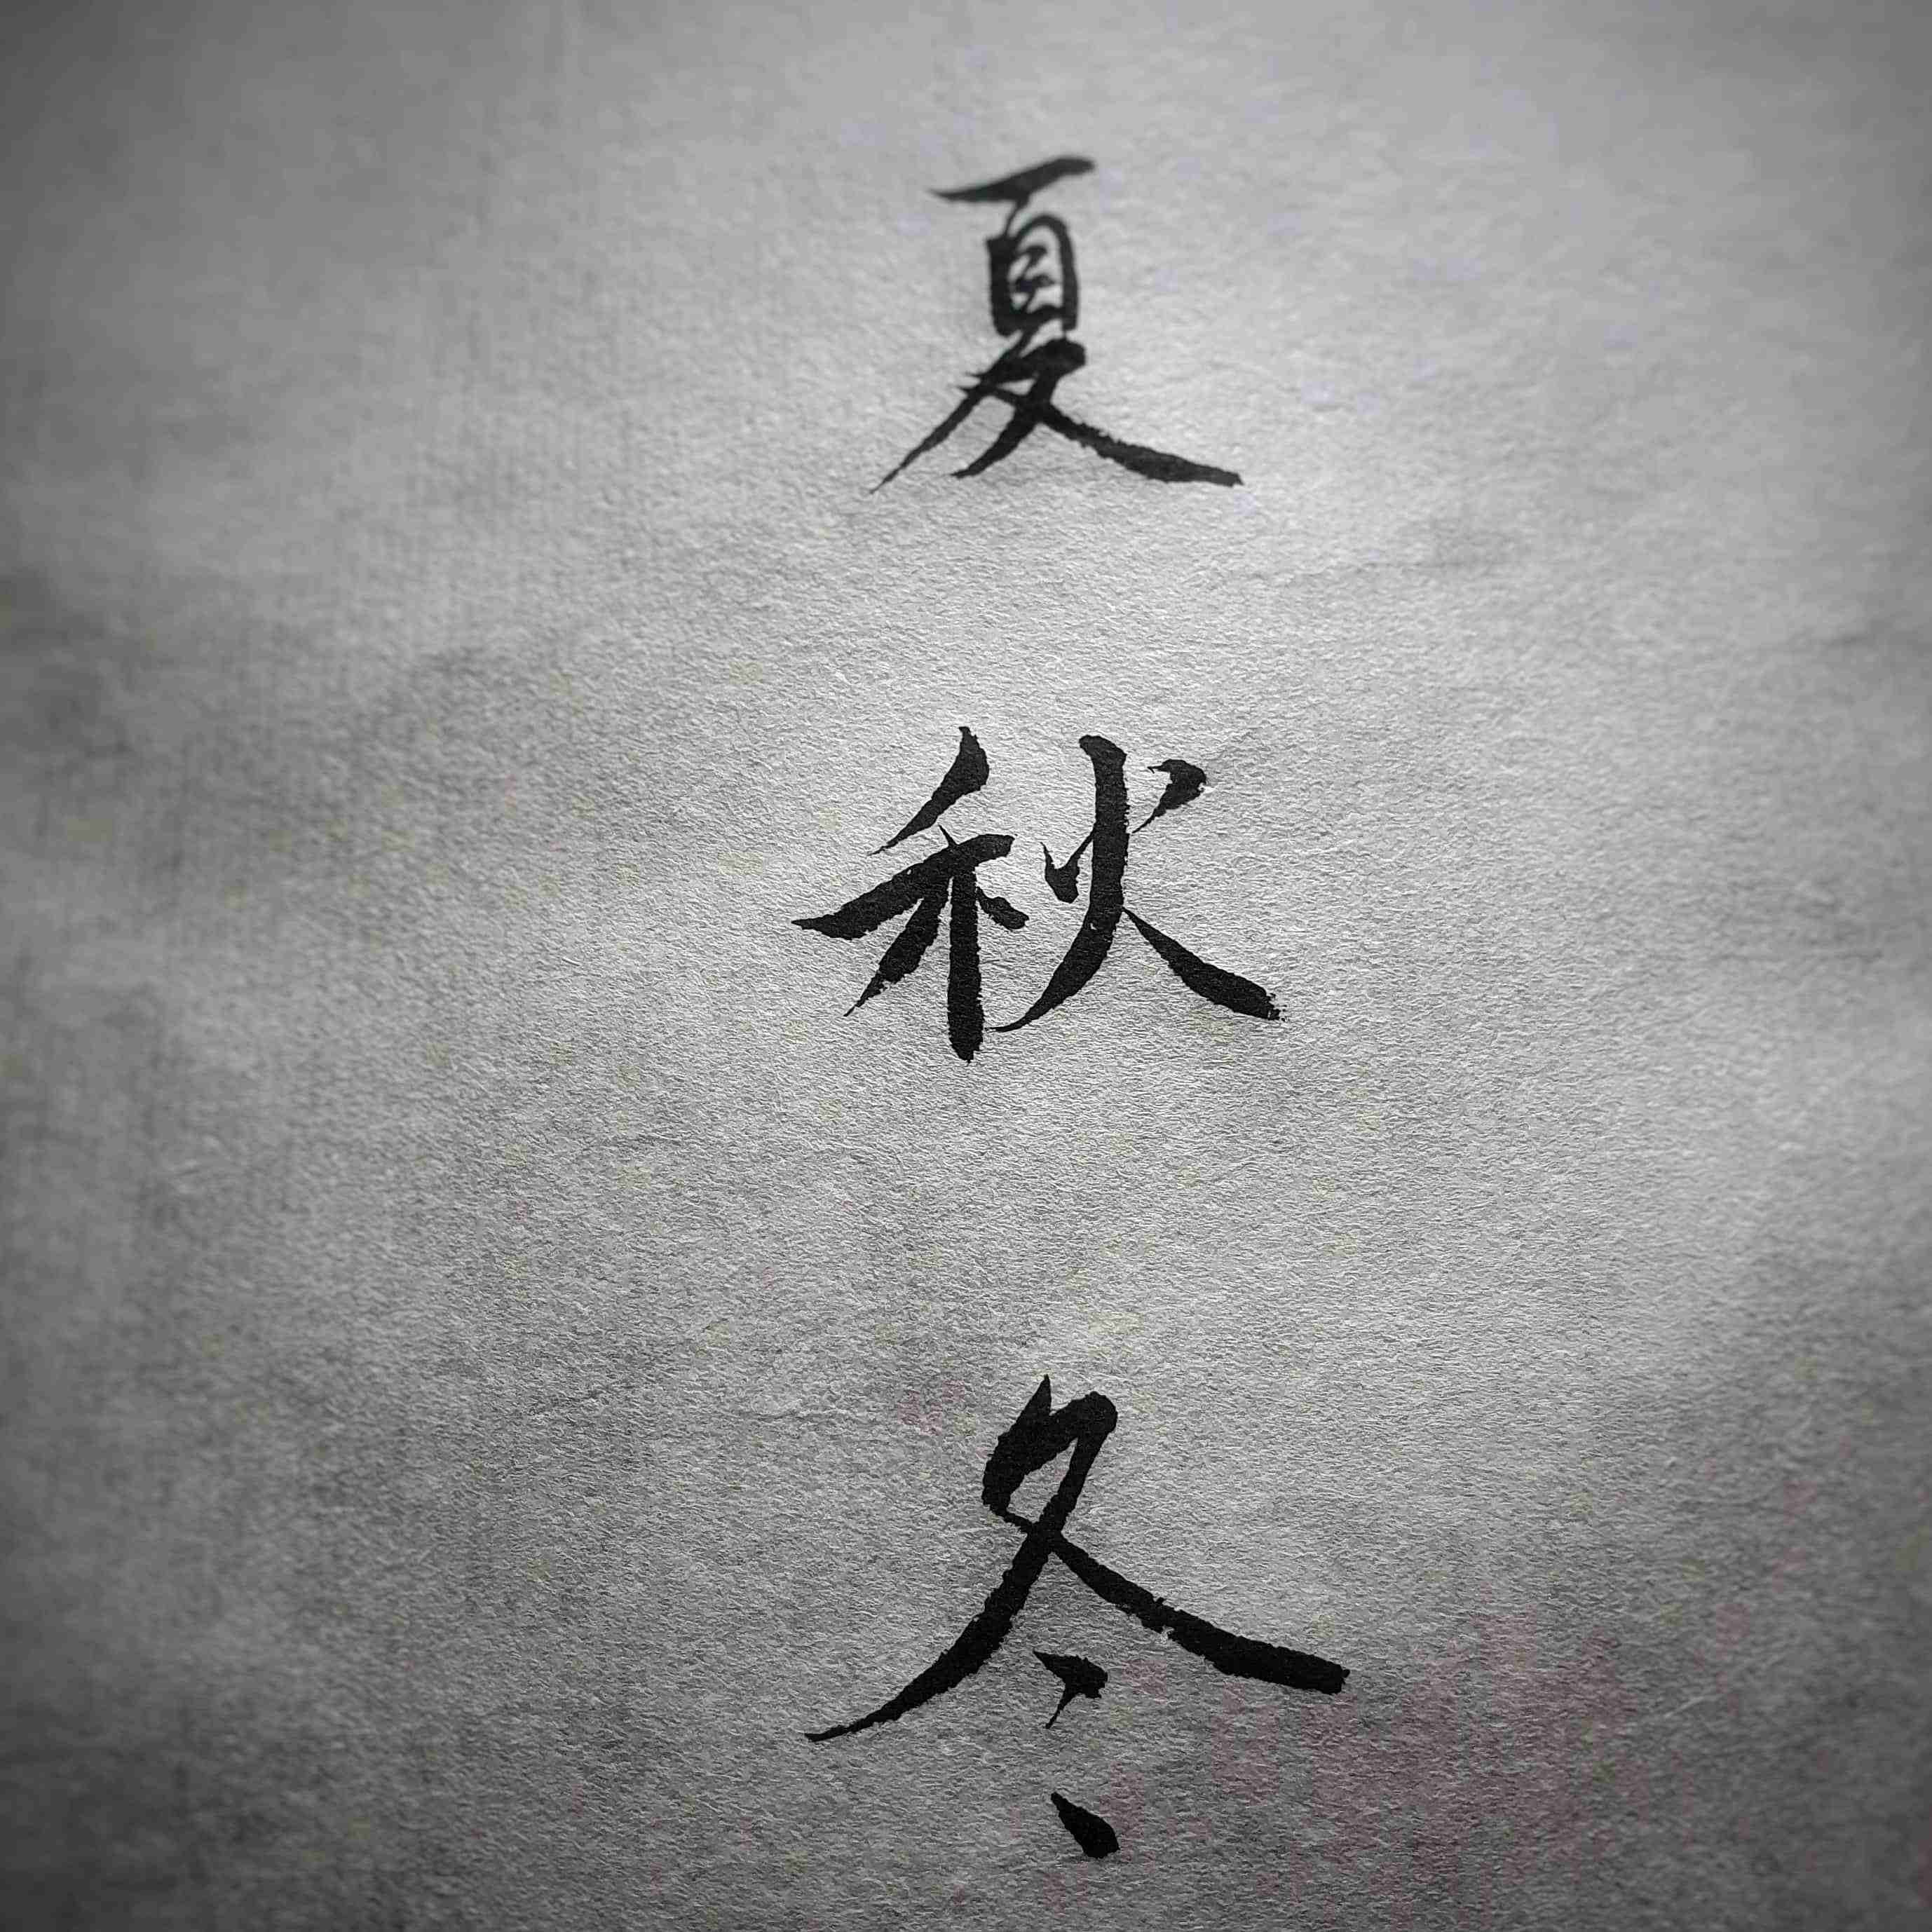 夏秋冬